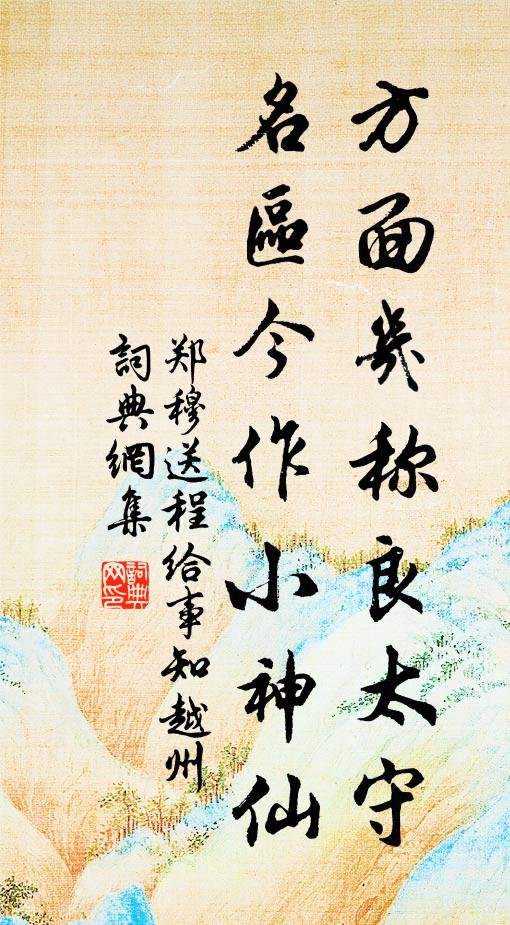 方面幾称良太守
名區今作小神仙
郑穆送程给事知越州
詞典網集
詞典
网印